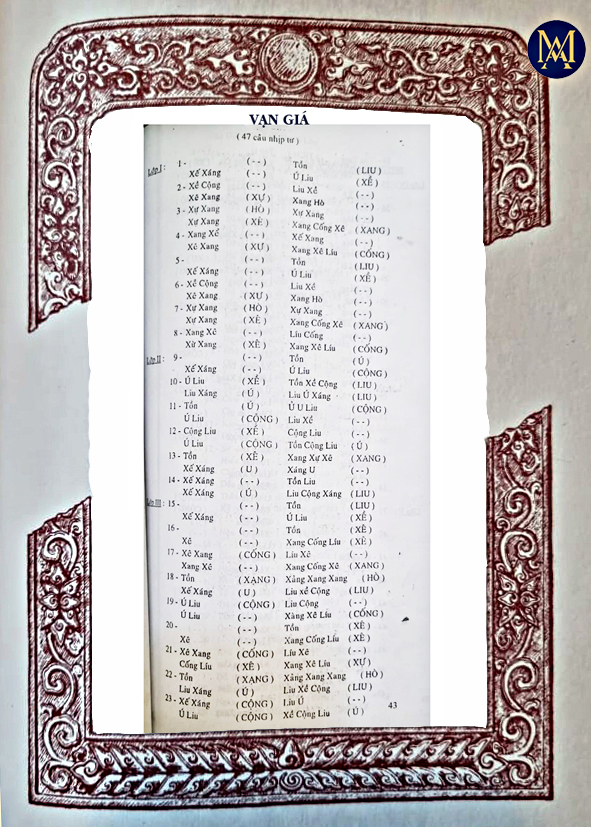 VẠN GIÁ
( 47 câu nhịp tư )
Lớp I : 1 - ( - - ) Tồn (LIU )
Xế Xáng ( - - ) Ú Liu ( XỀ )
2 - Xề Cộng ( - - ) Liu Xề ( - - )
Xê Xang ( XỰ ) Xang Hò ( - - )
3 - Xự Xang ( HÒ ) Xự Xang ( - - )
Xự Xang ( XÊ ) Xang Cống Xê ( XANG )
4 - Xang Xể ( - - ) Xế Xang ( - - )
Xê Xang ( XỰ ) Xang Xê Liu ( CỐNG )
5 - ( - - ) Tồn ( LIU )
Xế Xáng ( - - ) Ú Liu ( XỀ )
6 - Xề Cộng ( - - ) Liu Xề ( - - )
Xê Xang ( XỰ ) Xang Hò ( - - )
7 - Xự Xang ( HÒ ) Xự Xang ( - - )
Xự Xang ( XÊ ) Xang Cống Xê ( XANG )
8 - Xang Xê ( - - ) Liu Cống ( - - )
Xừ Xang ( XÊ ) Xang Xê Líu ( CỐNG )
Lớp II : 9 - ( - - ) Tồn ( Ú )
Xế Xáng ( - - ) Ú Liu ( CỘNG )
10 - Ú Liu ( XỀ ) Tồn Xề Cộng ( LIU )
Liu Xáng ( Ú ) Liu Ú Xáng ( LIU )
11 - Tồn ( Ú ) Ú U Liu ( CỘNG )
Ú Liu ( CỘNG ) Liu Xề ( - - )
12 - Cộng Liu ( XỀ ) Cộng Liu ( - - )
Ú Liu ( CỘNG ) Tồn Cộng Liu ( Ú )
13 - Tồn ( XÊ ) Xang Xự Xê ( XANG )
Xế Xáng ( U ) Xáng U ( - - )
14 - Xế Xáng ( - - ) Tồn Liu ( - - )
Xế Xáng ( Ú ) Liu Cộng Xáng ( LIU )
Lớp III : 15 - ( - - ) Tồn ( LIU )
Xế Xáng ( - - ) Ú Liu ( XỀ )
16 - ( - - ) Tồn ( XÊ )
Xê ( - - ) Xang Cống Líu ( XÊ )
17 - Xê Xang ( CỐNG ) Líu Xê ( - - )
Xang Xê ( - - ) Xang Cống Xê ( XANG )
18 - Tồn ( XANG ) Xảng Xang Xang ( HÒ )
Xế Xáng ( U ) Liu xề Cộng ( LIU )
19 - Ú Liu ( CỘNG ) Liu Cộng ( - - )
Ú Liu ( - - ) Xàng Xê Líu ( CỐNG )
20 - ( - - ) Tồn ( XÊ )
Xê ( - - ) Xang Cống Líu ( XÊ )
21 - Xê Xang ( CỐNG ) Líu Xê ( - - )
Cống Líu ( XÊ ) Xang Xê Líu ( XỰ )
22 - Tồn ( XANG ) Xảng Xang Xang ( HÒ )
Liu Xáng ( Ú ) Liu Xề Cộng ( LIU )
23 - Xế Xáng ( CỘNG ) Liu Ú ( - - )
Ú Liu ( CỘNG ) Xề Cộng Liu ( Ú )
43